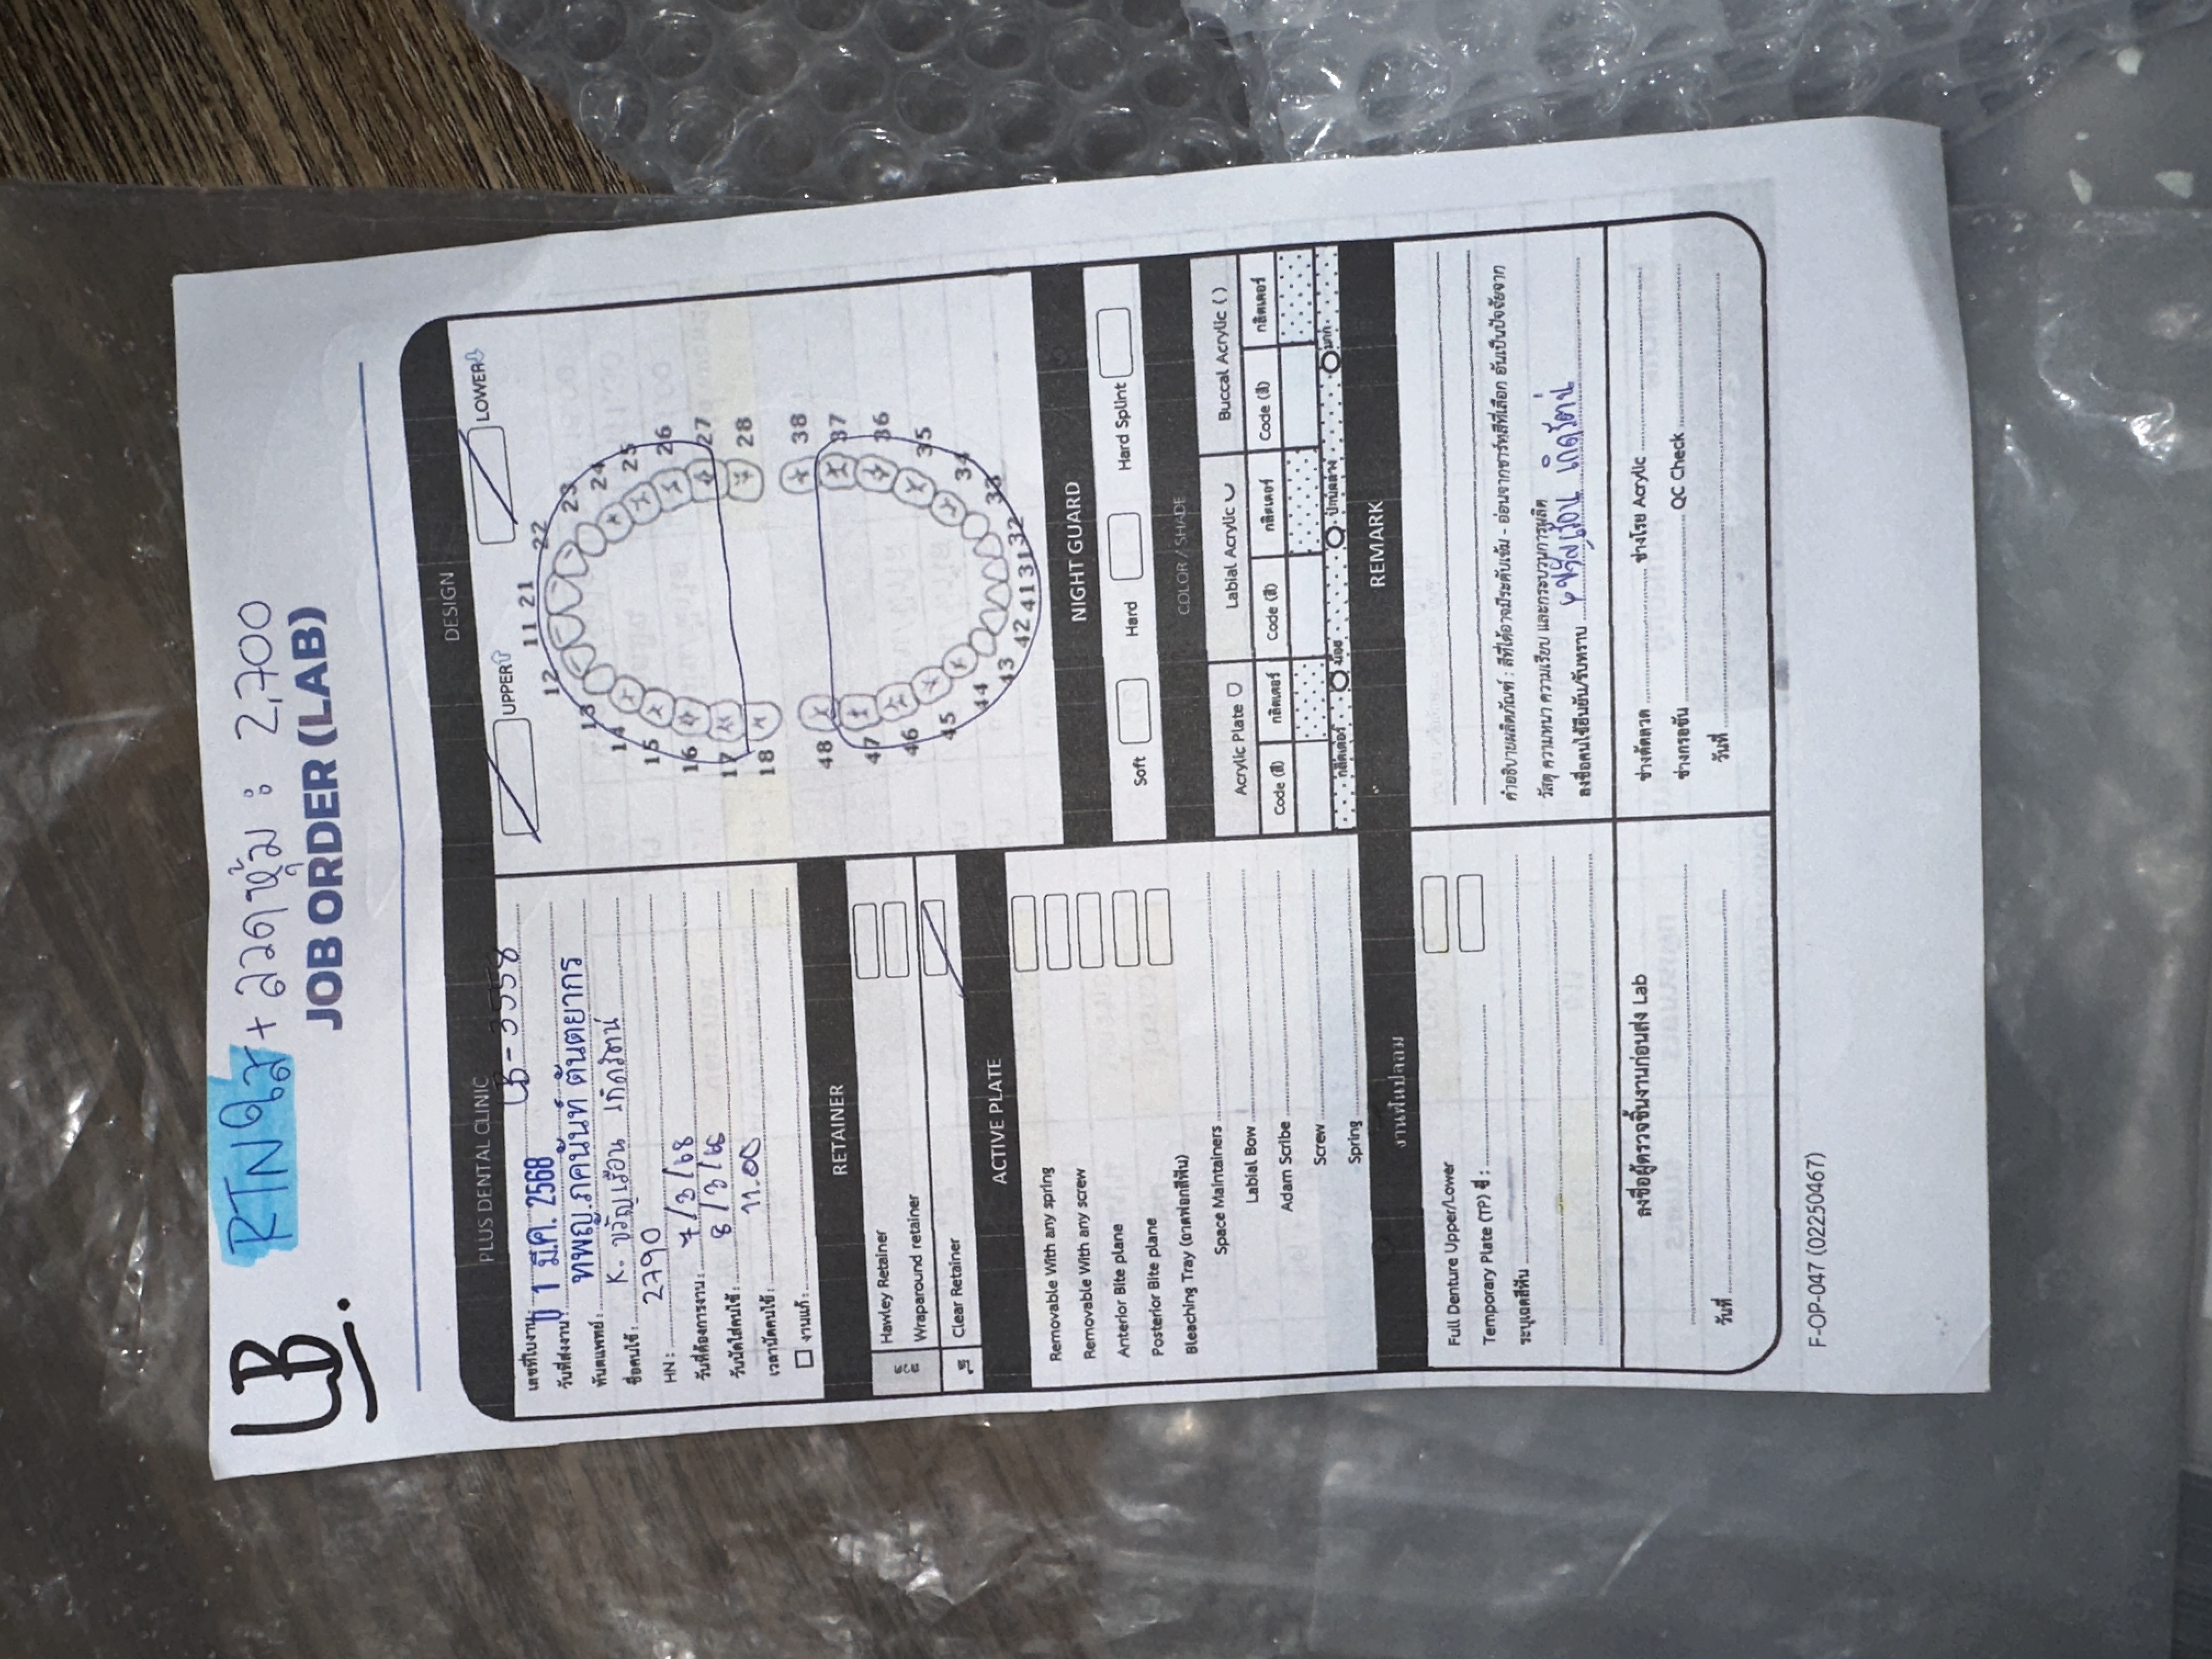 LB.
RTN ใส + ลวดหุ้ม : 2,700
JOB ORDER (LAB)
PLUS DENTAL CLINIC
เลขที่ใบงาน : LB-3558
วันที่ส่งงาน : 0 1 มี.ค. 2568
ทันตแพทย์ : ทพญ.ภคนันท์ ตันตยากร
ชื่อคนไข้ : K. ขวัญเรือน เกิดรัตน์
HN : 2790
วันที่ต้องการงาน : 7/3/68
วันนัดใส่คนไข้ : 8/3/68
เวลานัดคนไข้ : 11.00
งานแก้ :
RETAINER
ลวด
Hawley Retainer
Wraparound retainer
ใส
Clear Retainer
ACTIVE PLATE
Removable With any spring
Removable With any screw
Anterior Bite plane
Posterior Bite plane
Bleaching Tray (ถาดฟอกสีฟัน)
Space Maintainers
Labial Bow
Adam Scribe
Screw
Spring
งานฟันปลอม
Full Denture Upper/Lower
Temporary Plate (TP) ซี่ :
ระบุเฉดสีฟัน
ลงชื่อผู้ตรวจชิ้นงานก่อนส่ง Lab
วันที่
DESIGN
UPPER LOWER
11 21
12 22
13 23
14 24
15 25
16 26
17 27
18 28
48 38
47 37
46 36
45 35
44 34
43 33
42 41 31 32
NIGHT GUARD
Soft Hard Hard Splint
COLOR / SHADE
Acrylic Plate Labial Acrylic Buccal Acrylic ( )
Code (สี) กลิตเตอร์ Code (สี) กลิตเตอร์ Code (สี) กลิตเตอร์
กลิตเตอร์ น้อย ปานกลาง มาก
REMARK
คำอธิบายผลิตภัณฑ์ : สีที่ได้อาจมีระดับเข้ม - อ่อนจากชาร์ทสีที่เลือก อันเป็นปัจจัยจาก
วัสดุ ความหนา ความเรียบ และกระบวนการผลิต
ลงชื่อคนไข้ยืนยัน/รับทราบ ขวัญเรือน เกิดรัตน์
ช่างดัดลวด ช่างโรย Acrylic
ช่างกรอขัน QC Check
วันที่
F-OP-047 (02250467)